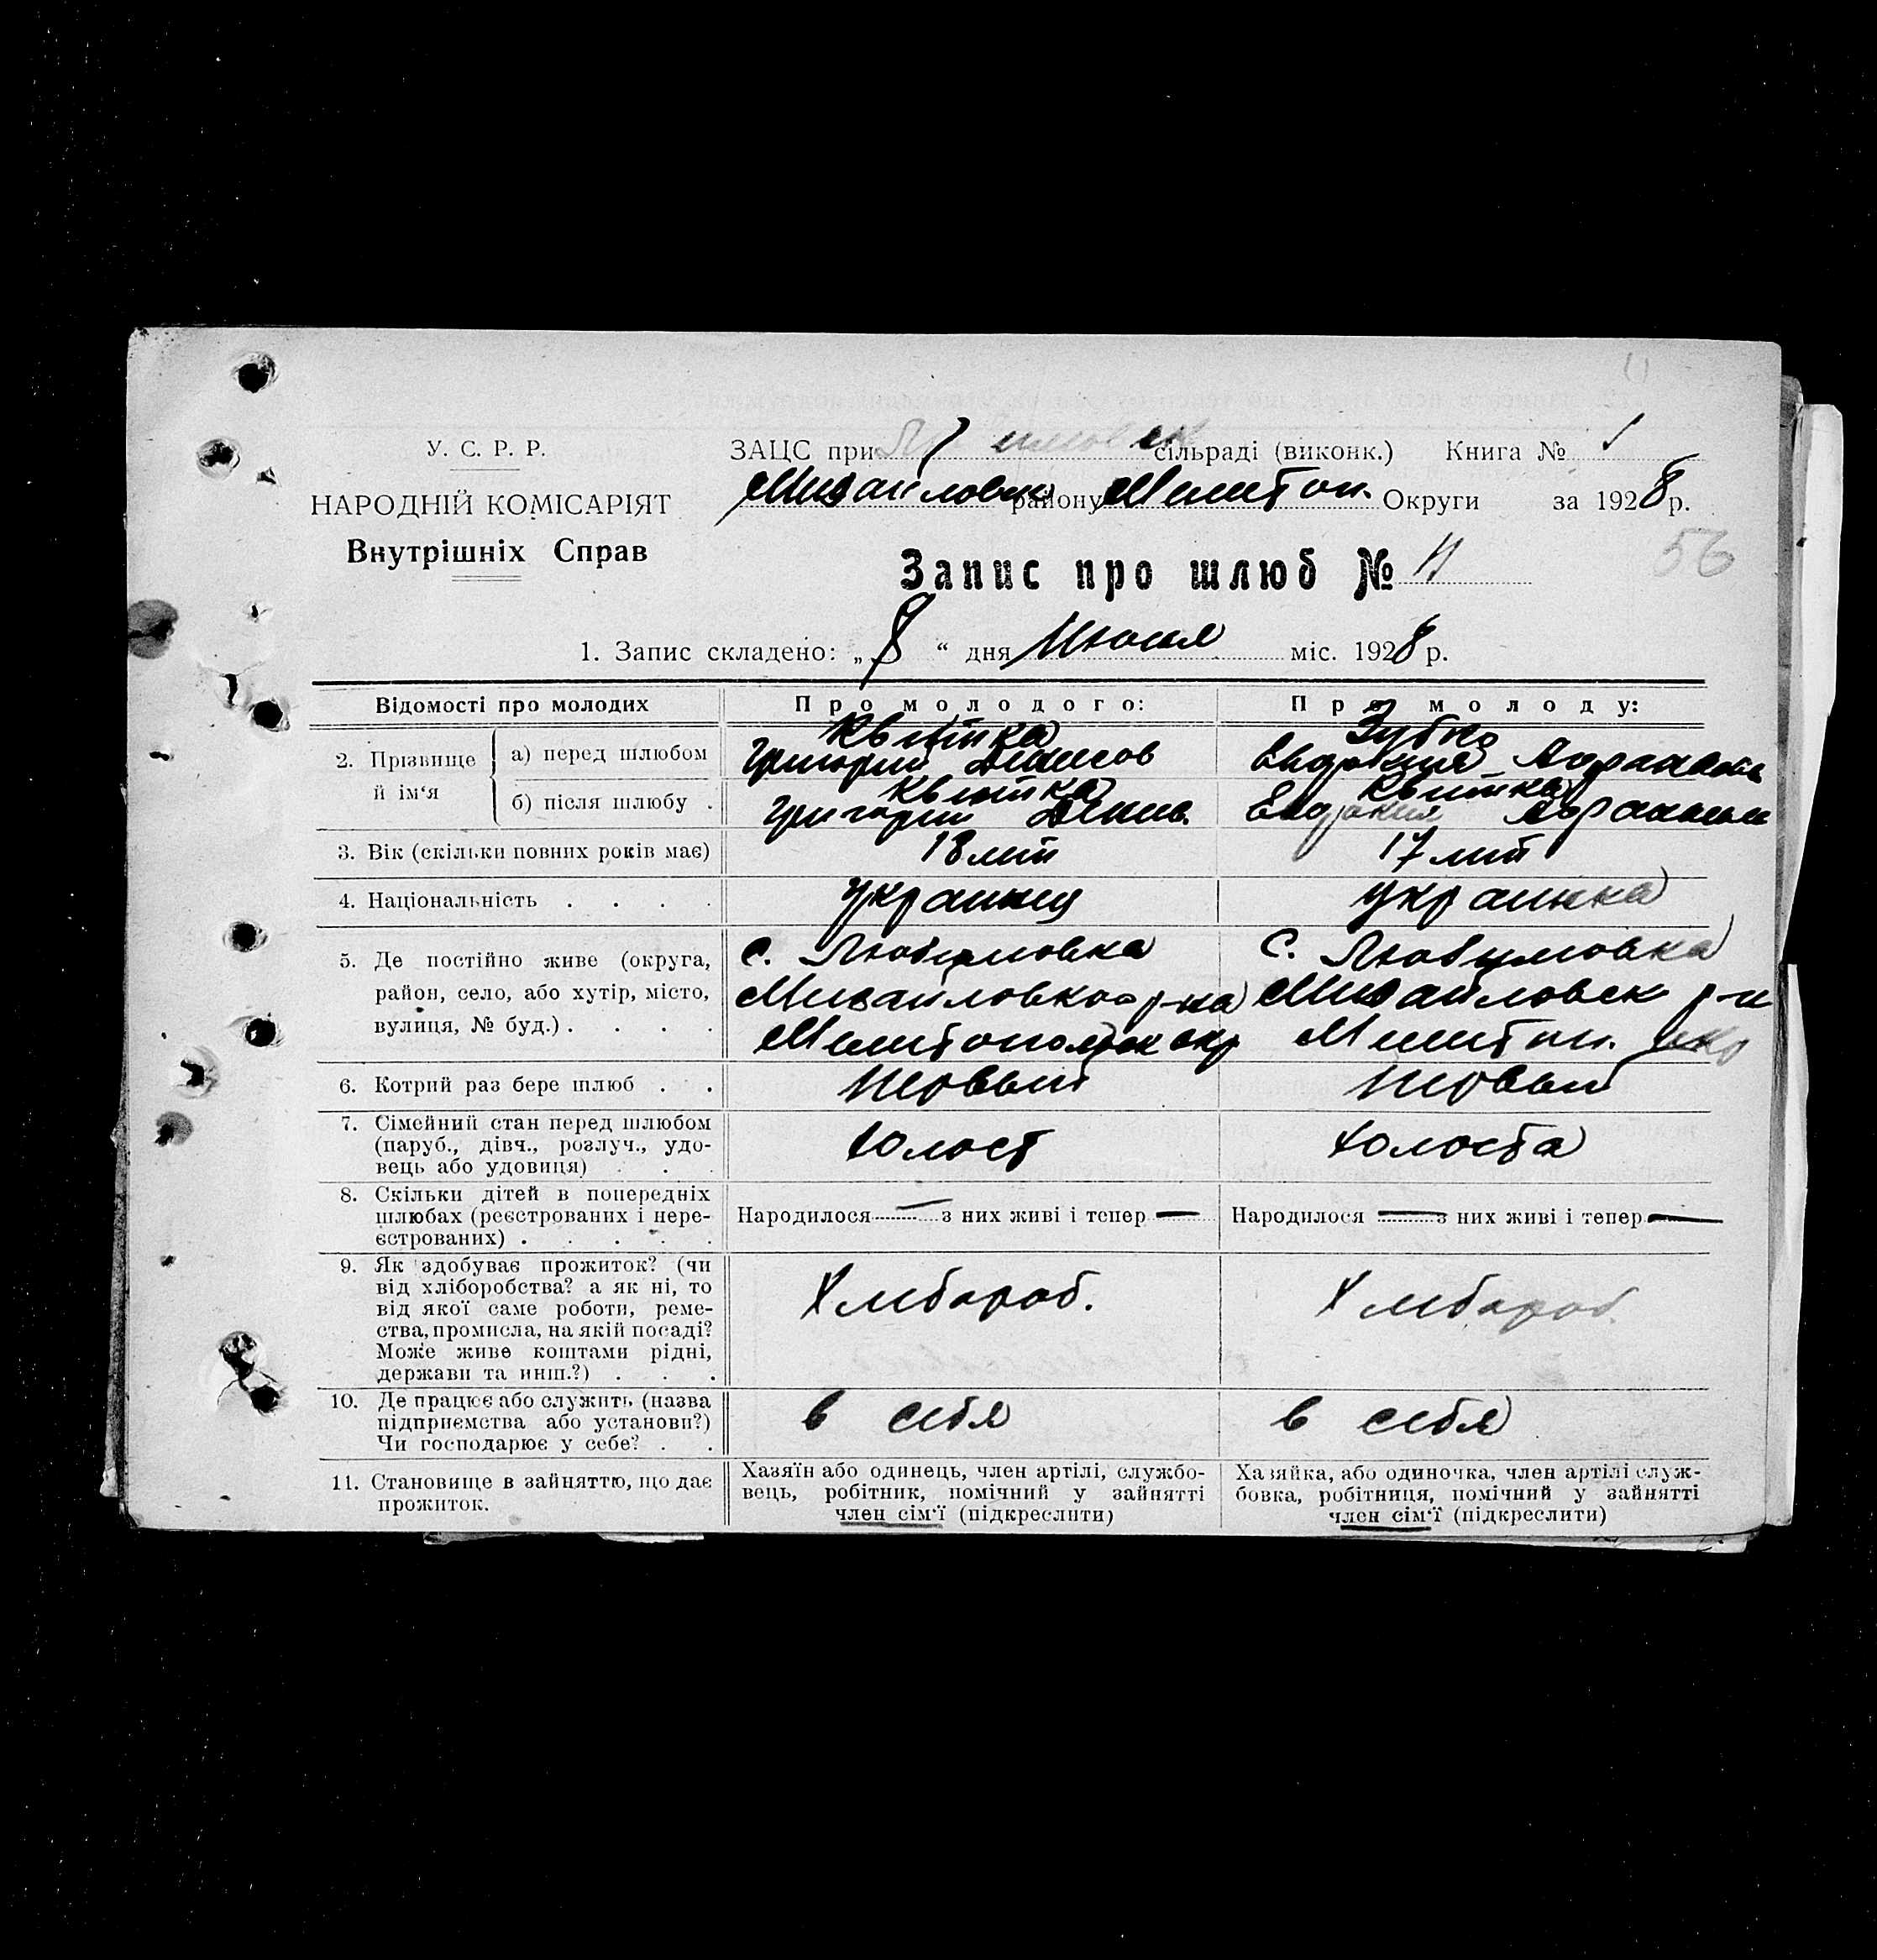 У. С. Р. Р.
НАРОДНІЙ КОМІСАРІЯТ
Внутрішніх Справ
ЗАЦС при сільраді (виконк.) Книга № 1
Михайловск району Мелитоп. Округи за 1928 р.
56
Запис про шлюб № 11
1. Запис складено: „8“ дня Июля міс. 1928 р.
Відомості про молодих
Про молодого:
Про молоду:
2. Прізвище й ім‘я
а) перед шлюбом
Квитка
Григорий Денисов
Зубко
Евдокия
б) після шлюбу .
Квитка
Григорий Денис.
Квитка
Евдокия
3. Вік (скільки повних років має)
18 лит
17 лит
4. Національність . . . .
украинец
украинка
5. Де постійно живе (округа,
район, село, або хутір, місто,
вулиця, № буд.) . . . .
с. Любимовка
р-на
окр
с. Любимовка
Михайловск р-н
Мелитоп. окр
6. Котрий раз бере шлюб . .
первый
первый
7. Сімейний стан перед шлюбом
(паруб., дівч., розлуч., удо-
вець або удовиця) . . .
холост
холоста
8. Скільки дітей в попередніх
шлюбах (реєстрованих і нере-
єстрованих) . . . . .
Народилося — з них живі і тепер —
Народилося — з них живі і тепер —
9. Як здобуває прожиток? (чи
від хліборобства? а як ні, то
від якої саме роботи, реме-
ства, промисла, на якій посаді?
Може живе коштами рідні,
держави та инш.?) . . .
Хлебороб.
Хлебороб.
10. Де працює або служить (назва
підприємства або установи?)
Чи господарює у себе? . .
в себя
в себя
11. Становище в зайняттю, що дає
прожиток.
Хазяїн або одинець, член артілі, службо-
вець, робітник, помічний у зайнятті
член сім‘ї (підкреслити)
Хазяйка, або одиночка, член артілі служ-
бовка, робітниця, помічний у зайнятті
член сім‘ї (підкреслити)